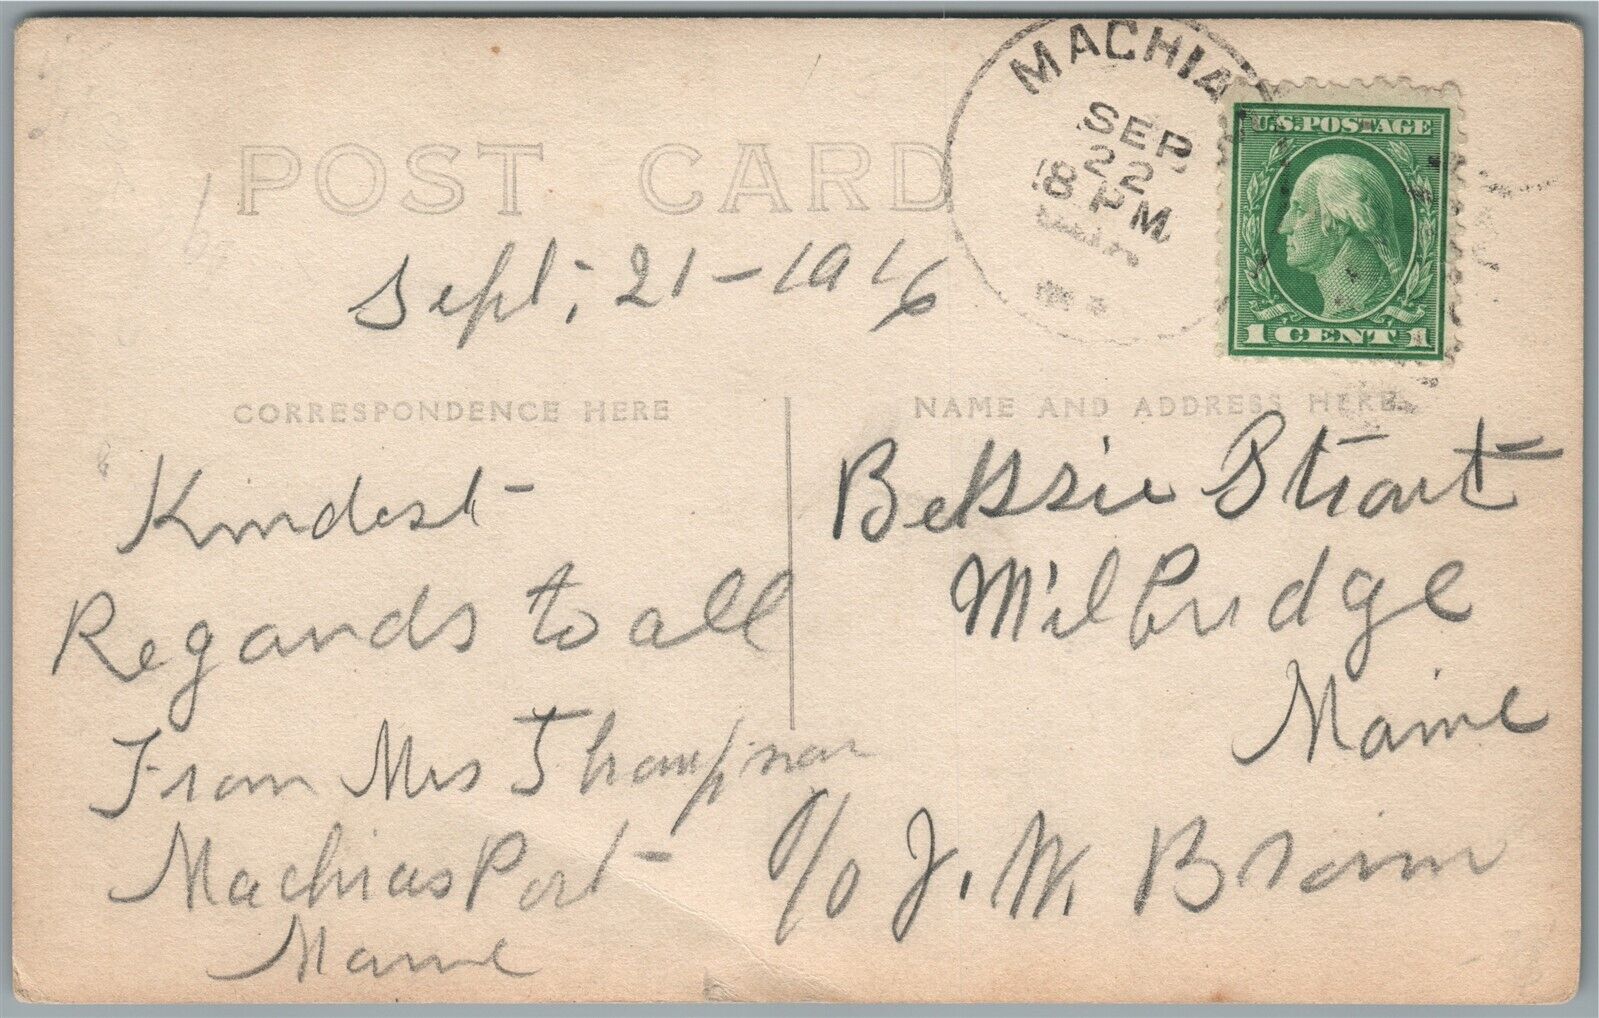 MACHIA
SEP
22
8 PM
U.S. POSTAGE
1 CENT 1
POST CARD
Sept, 21-1916
CORRESPONDENCE HERE
NAME AND ADDRESS HERE
Kindest
Regards to all
From Mrs Thompson
Machias Port
Maine
Bessie Strout
Milbridge
Maine
c/o J. W. Brown